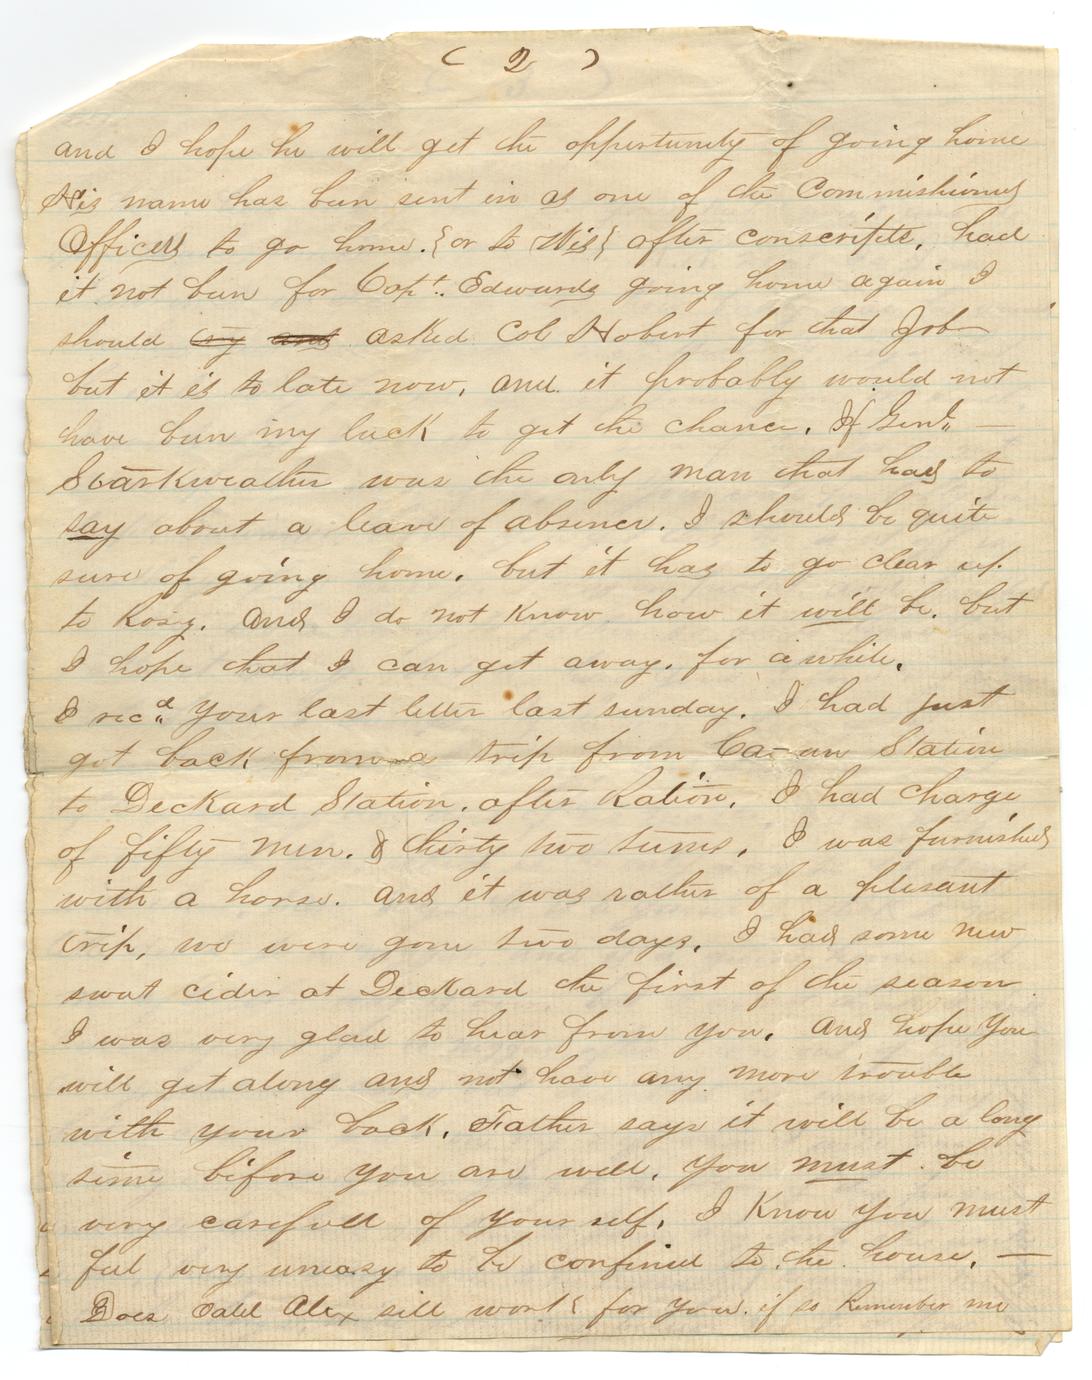 ( 2 )
and I hope he will get the opportunity of going home
His name has been sent in as one of the Commishioned
Officers to go home. {or to Wis} after conscripts, had
it not been for Capt. Edwards going home again I
should asked Col Hobert for that Job
but it is to late now, and it probably would not
have been my luck to get the chance. If Genl.
Starkweather was the only man that had to
say about a leave of absence. I should be quite
sure of going home. but it has to go clear up
to Rosy. and I do not know how it will be. but
I hope that I can get away. for a while.
I recd. your last letter last sunday. I had just
got back from a trip from Cowan Station
to Deckard Station. after Ration. I had charge
of fifty men. & thirty two teems. I was furnished
with a horse. and it was rather of a plesant
trip, we were gone two days. I had some new
sweet cider at Deckard the first of the season
I was very glad to hear from you. and hope you
will get along and not have any more trouble
with your back. Father says it will be a long
time before you are well. you must be
very carefull of your self. I know you must
feel very uneasy to be confined to the house. —
Does Oald Alex still work for you. if so Remember me